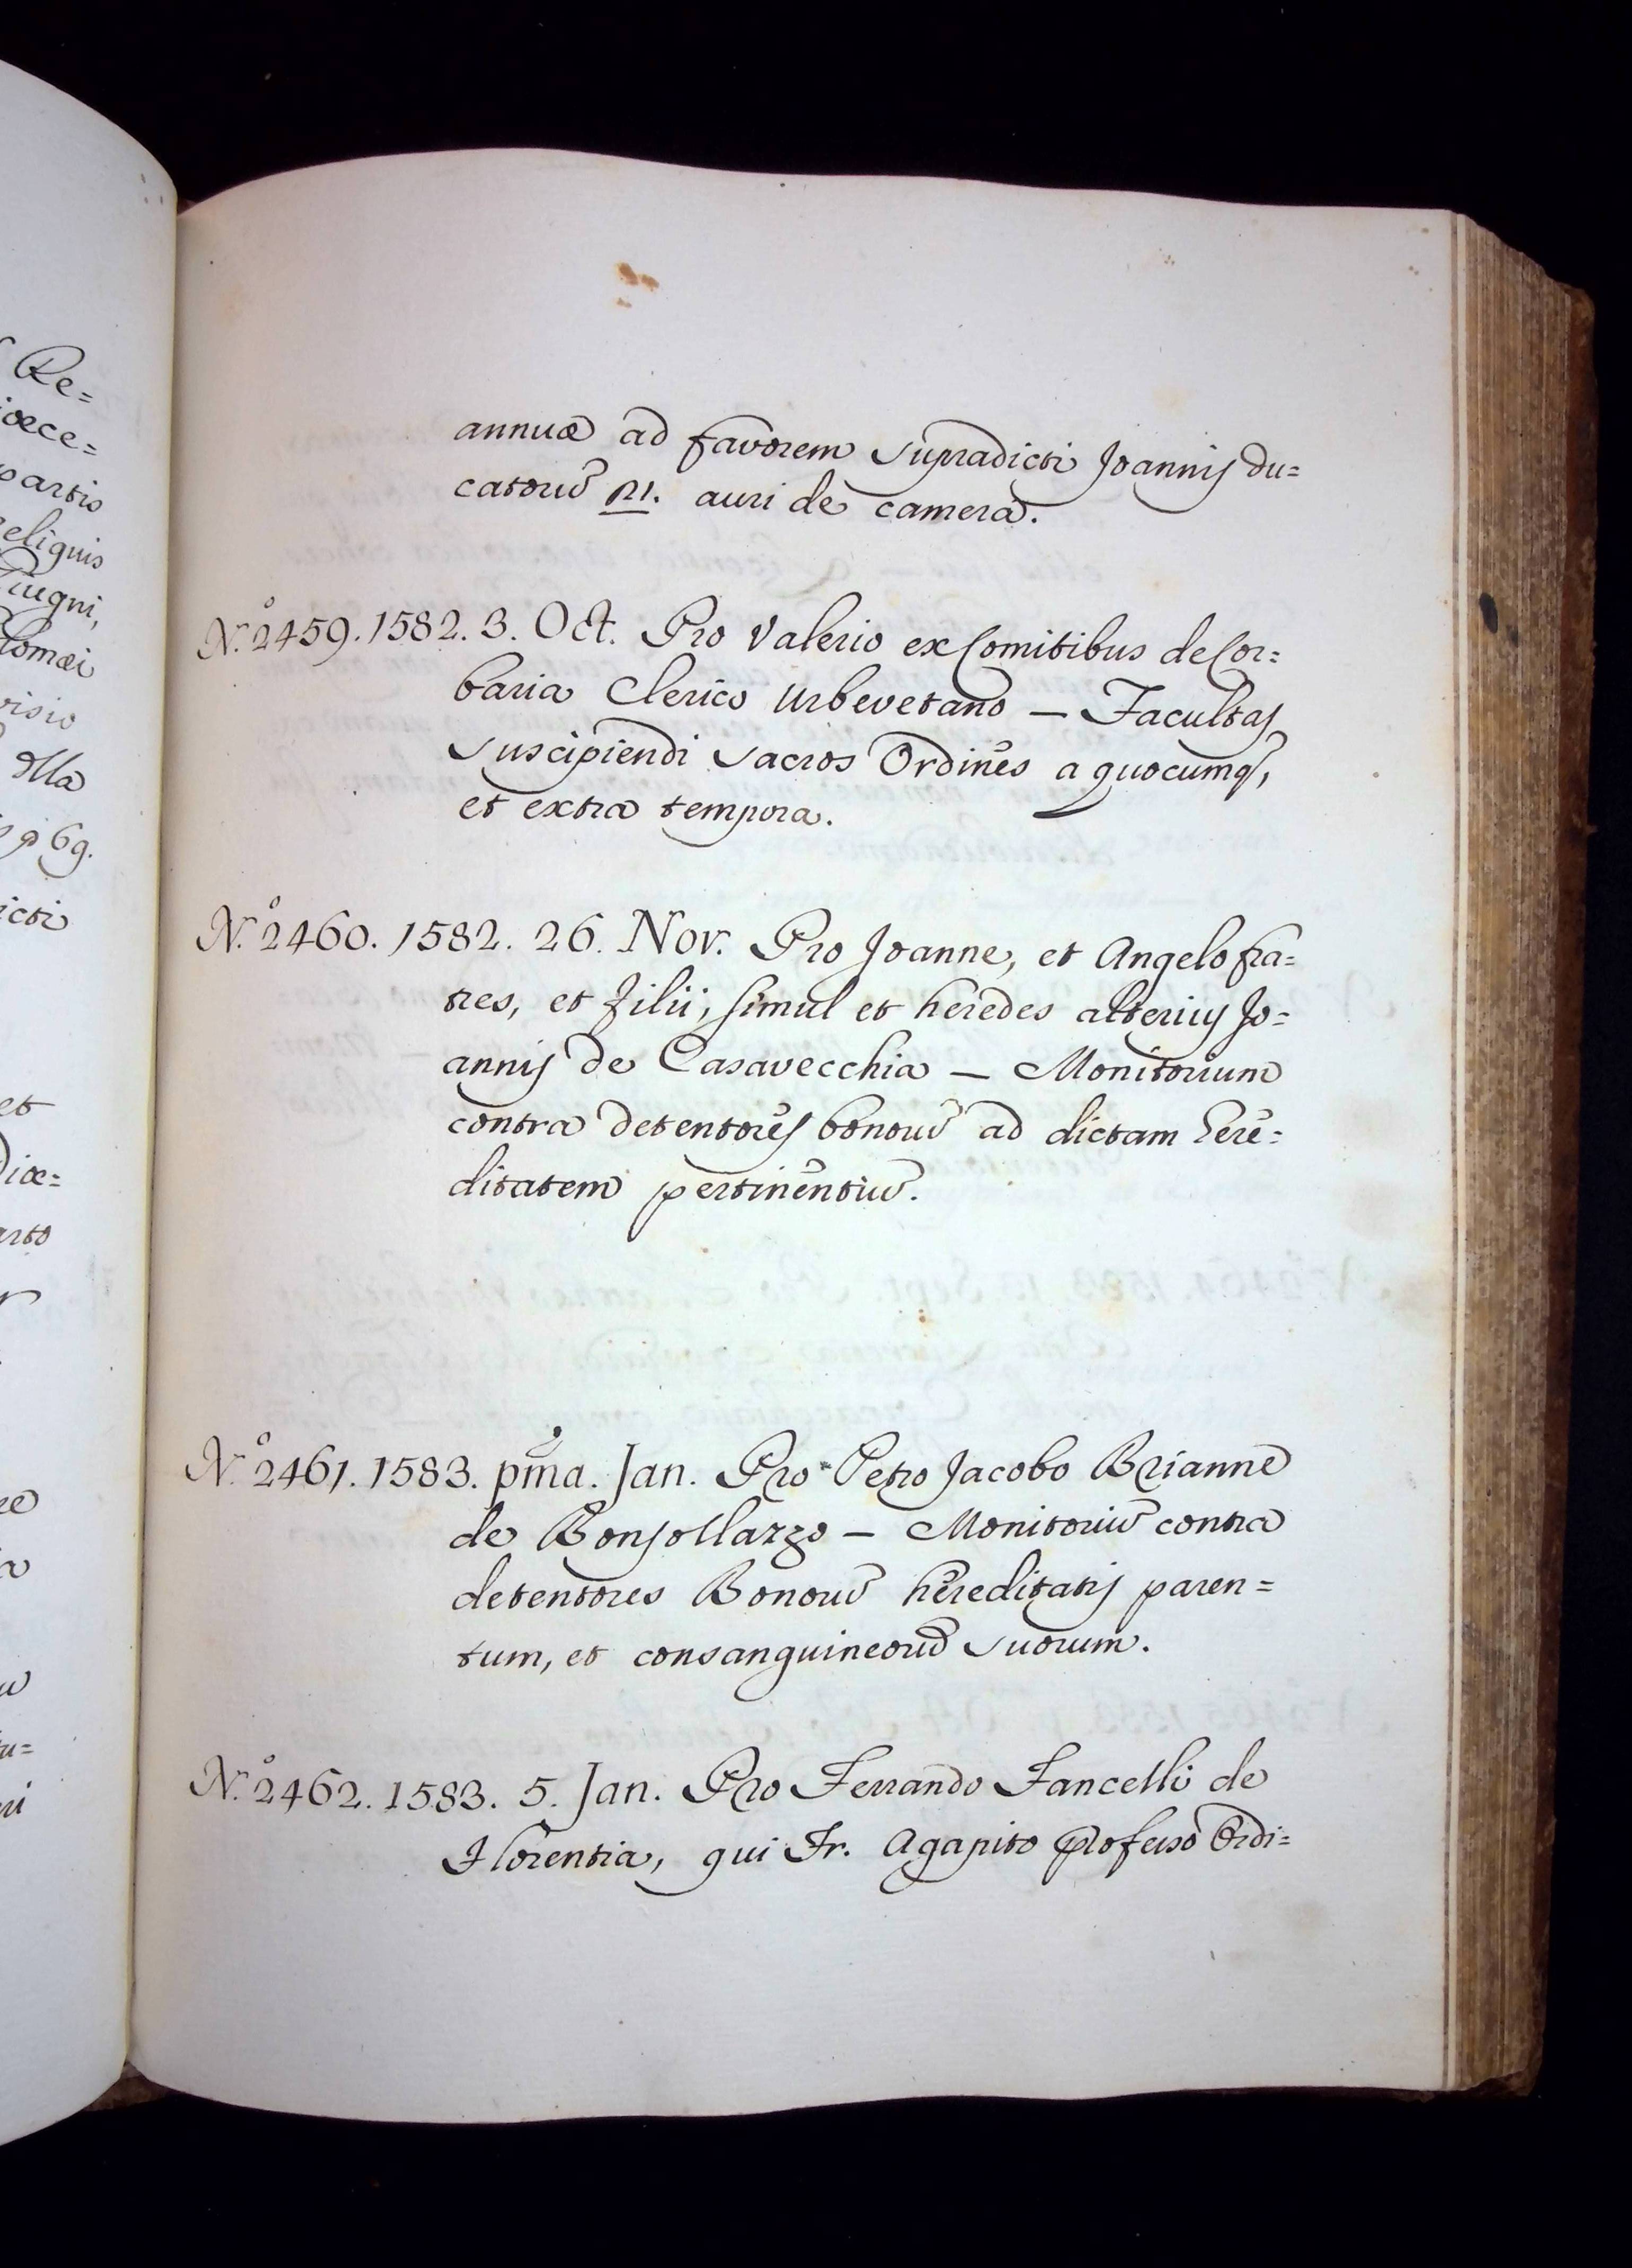 Re=
annuæ ad favorem supradicti Joannis du=
catorũ n. auri de camera.
N.º 2459. 1582. 3. Oct. Pro Valerio ex Comitibus de Cor=
baria Clerico Urbevetano — Facultas
suscipiendi sacros Ordines a quocumq,
et extra tempora.
N.º 2460. 1582. 26. Nov. Pro Joanne, et Angelo fra=
tres, et filii, simul et heredes alterius Jo=
annis de Casavecchia — Monitorium
contra detentores bonorũ ad dictam here=
ditatem pertinentiũ.
N.º 2461. 1583. pma. Jan. Pro Petro Jacobo Brianne
de Bonsollazzo — Monitoriũ contra
detentores Bonorũ hereditatis paren=
tum, et consanguineorũ suorum.
N.º 2462. 1583. 5. Jan. Pro Ferrando Fancelli de
Florentia, qui Fr. Agapito Professo Ordi=